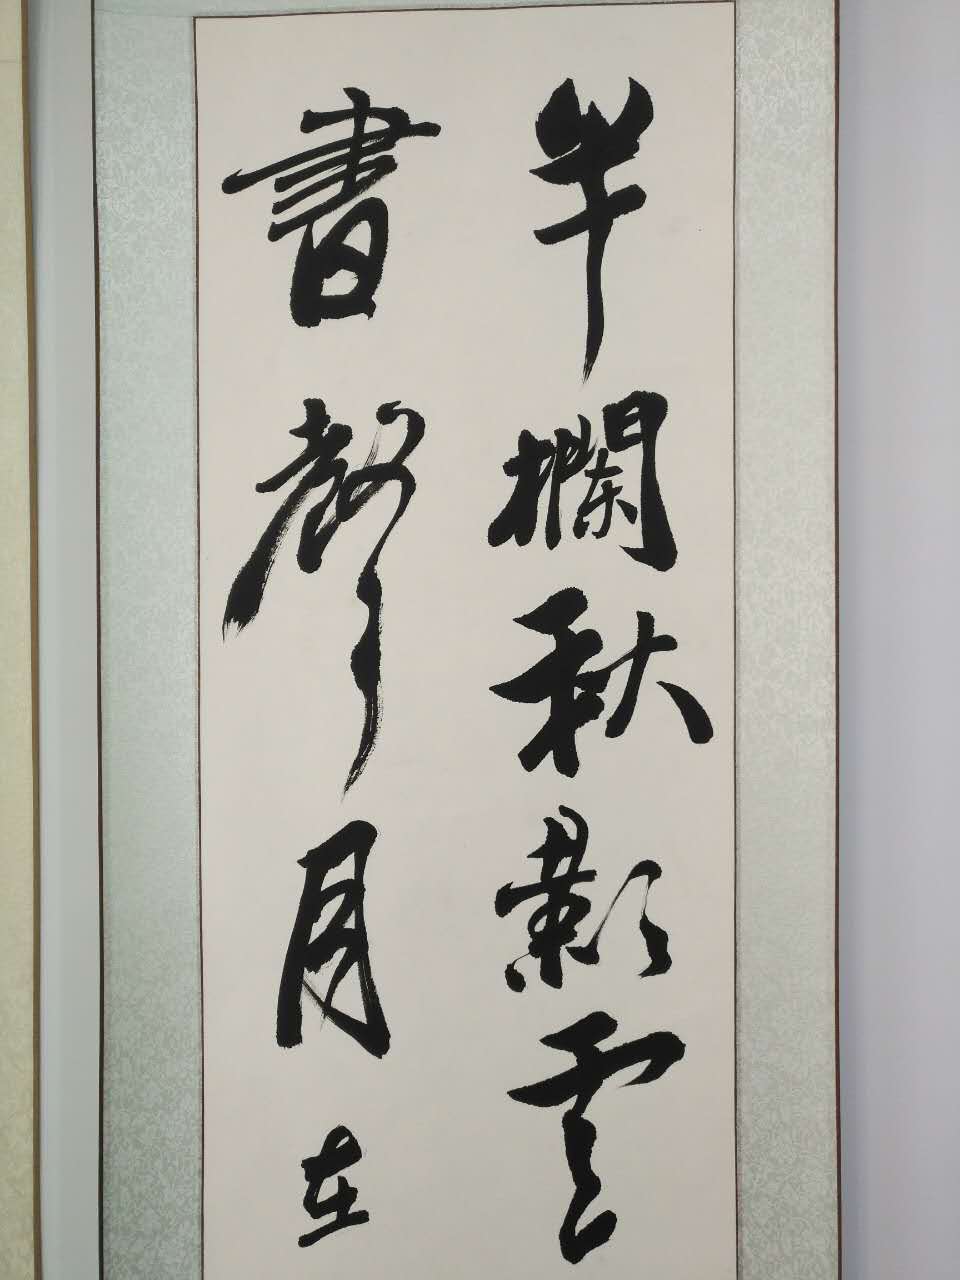 半欄秋影雲
書聲月在